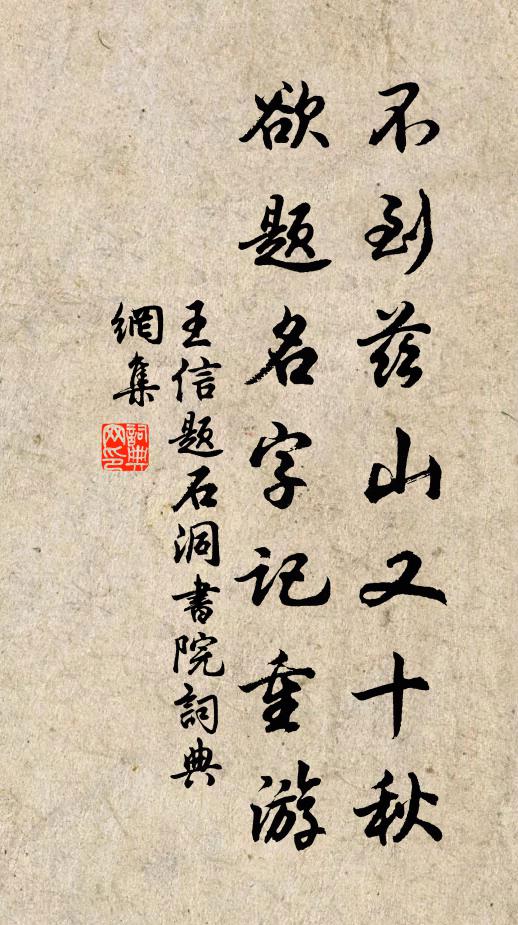 不到兹山又十秋
欲题名字记重游
王信题石洞書院詞典
網集
詞典
网印